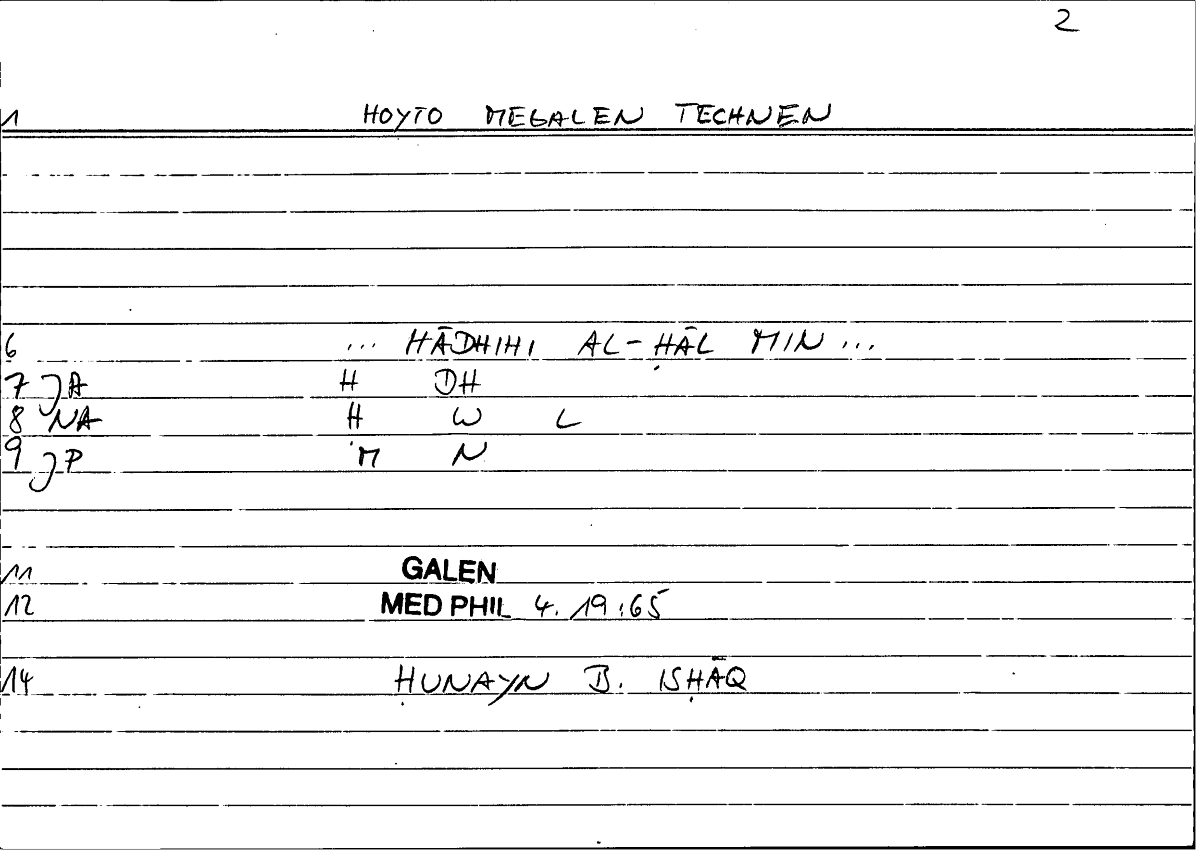 2
1 HOYTO MEGALEN TECHNEN
6 ... HĀDHIHI AL-ḤĀL MIN ...
7 JA H DH
8 NA H W L
9 JP 'M N
11 GALEN
12 MED PHIL 4. 19:65
14 ḤUNAYN B. ISḤĀQ